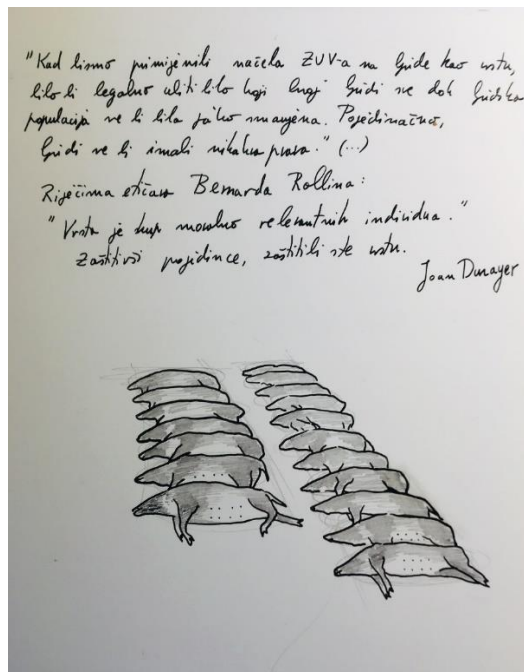 "Kad bismo primijenili načela ZUV-a na ljude kao vrstu,
bilo bi legalno ubiti bilo koji broj ljudi sve dok ljudska
populacija ne bi bila jako smanjena. Pojedinačno,
ljudi ne bi imali nikakva prava." (...)
Riječima etičara Bernarda Rollina:
"Vrsta je skup moralno relevantnih individua."
Zaštitivši pojedince, zaštitili ste vrstu.
Joan Dunayer